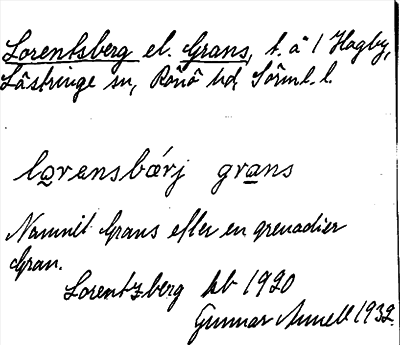 Lorentsberg el. Grans, t. å 1 Hagby,
Lästringe sn, Rönö hd, Sörml. l.
lo̲rensbærj gra̲ns
Namnet Grans efter en grenadier
Gran.
Lorentzberg kb 1920
Gunnar Annell 1932.